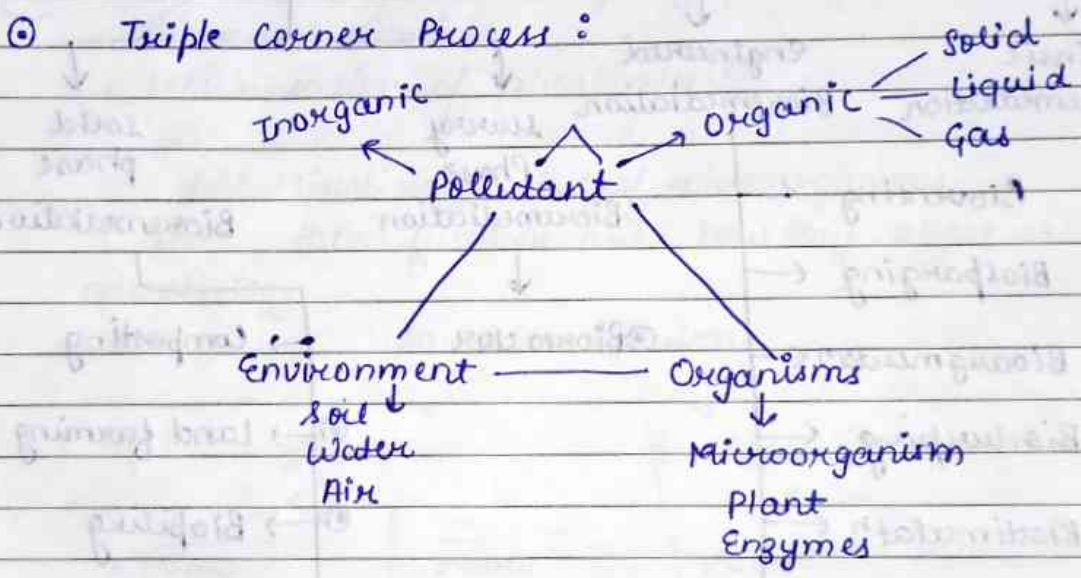 ⊙ Triple Corner Process :
Inorganic
Organic
Solid
Liquid
Gas
Pollutant
Environment
Organisms
Soil
Water
Air
Microorganism
Plant
Enzymes